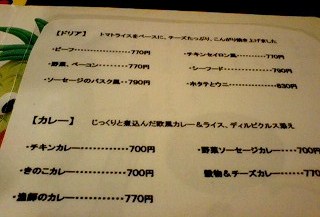 【ドリア】 トマトライスをベースに、チーズたっぷり、こんがり焼き上げました
・ビーフ・・・・・・・・・・・・・・770円
・チキンセイロン風・・・・770円
・野菜、ベーコン・・・・・・・770円
・シーフード・・・・・・・・790円
・ソーセージのバスク風・・790円
・ホタテとウニ・・・・・・・830円
【カレー】 じっくりと煮込んだ欧風カレー＆ライス、ディルピクルス添え
・チキンカレー・・・・・・・・・700円
・野菜ソーセージカレー・700円
・きのこカレー・・・・・・・・・700円
穀物＆チーズカレー・・770円
・漁師のカレー・・・・・・・・・770円